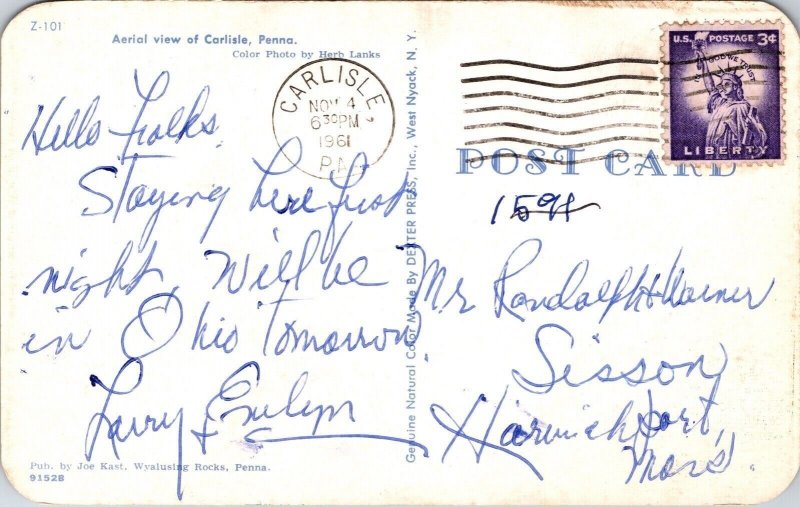 Z-101
Aerial view of Carlisle, Penna.
Color Photo by Herb Lanks
Hello Folks
Staying here first
night, will be
in Ohio Tomorrow
Larry & Evelyn
Pub. by Joe Kast, Wyalusing Rocks, Penna.
91528
Genuine Natural Color Made By DEXTER PRESS, Inc., West Nyack, N. Y.
CARLISLE
NOV 4
630PM
1961
PA
U.S. POSTAGE 3¢
IN GOD WE TRUST
LIBERTY
POST CARD
1594
Mr Randolph
Sisson
Harwichport,
Mass